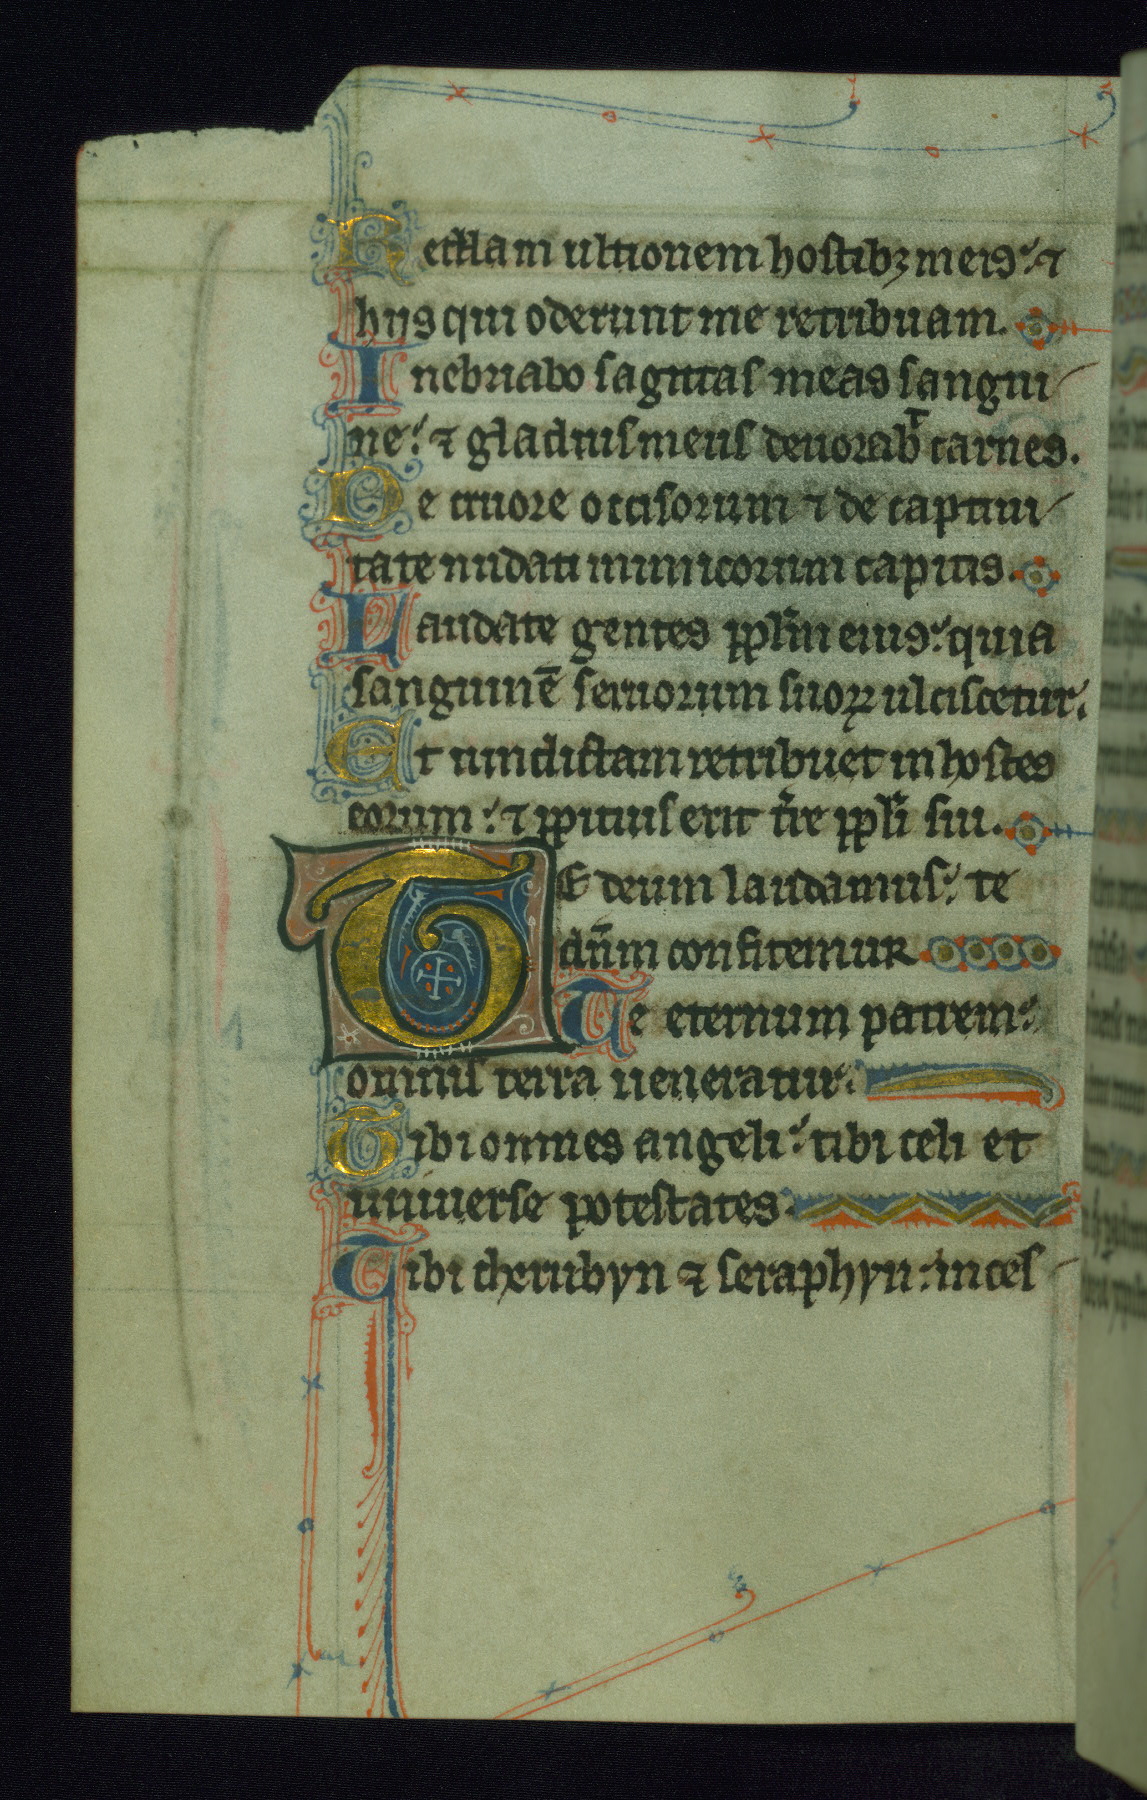 Reddam ultionem hostibꝫ meis: ⁊
hijs qui oderunt me retribuam.
Inebriabo sagittas meas sangui
ne: ⁊ gladius meus deuorabͭ carnes.
De cruore occisorum ⁊ de captiui
tate nudati inimicorum capitis.
Laudate gentes ppl̄m eius: quia
sanguinē seruorum suoꝝ ulciscetur.
Et uindictam retribuet in hostes
eorum: ⁊ ꝓpitius erit t̄re ppl̄i sui.
TE deum laudamus: te
dn̄m confitemur
Te eternum patrem:
omnis terra ueneratur.
Tibi omnes angeli: tibi celi et
uniuerse potestates.
Tibi cherubyn ⁊ seraphyn: inces